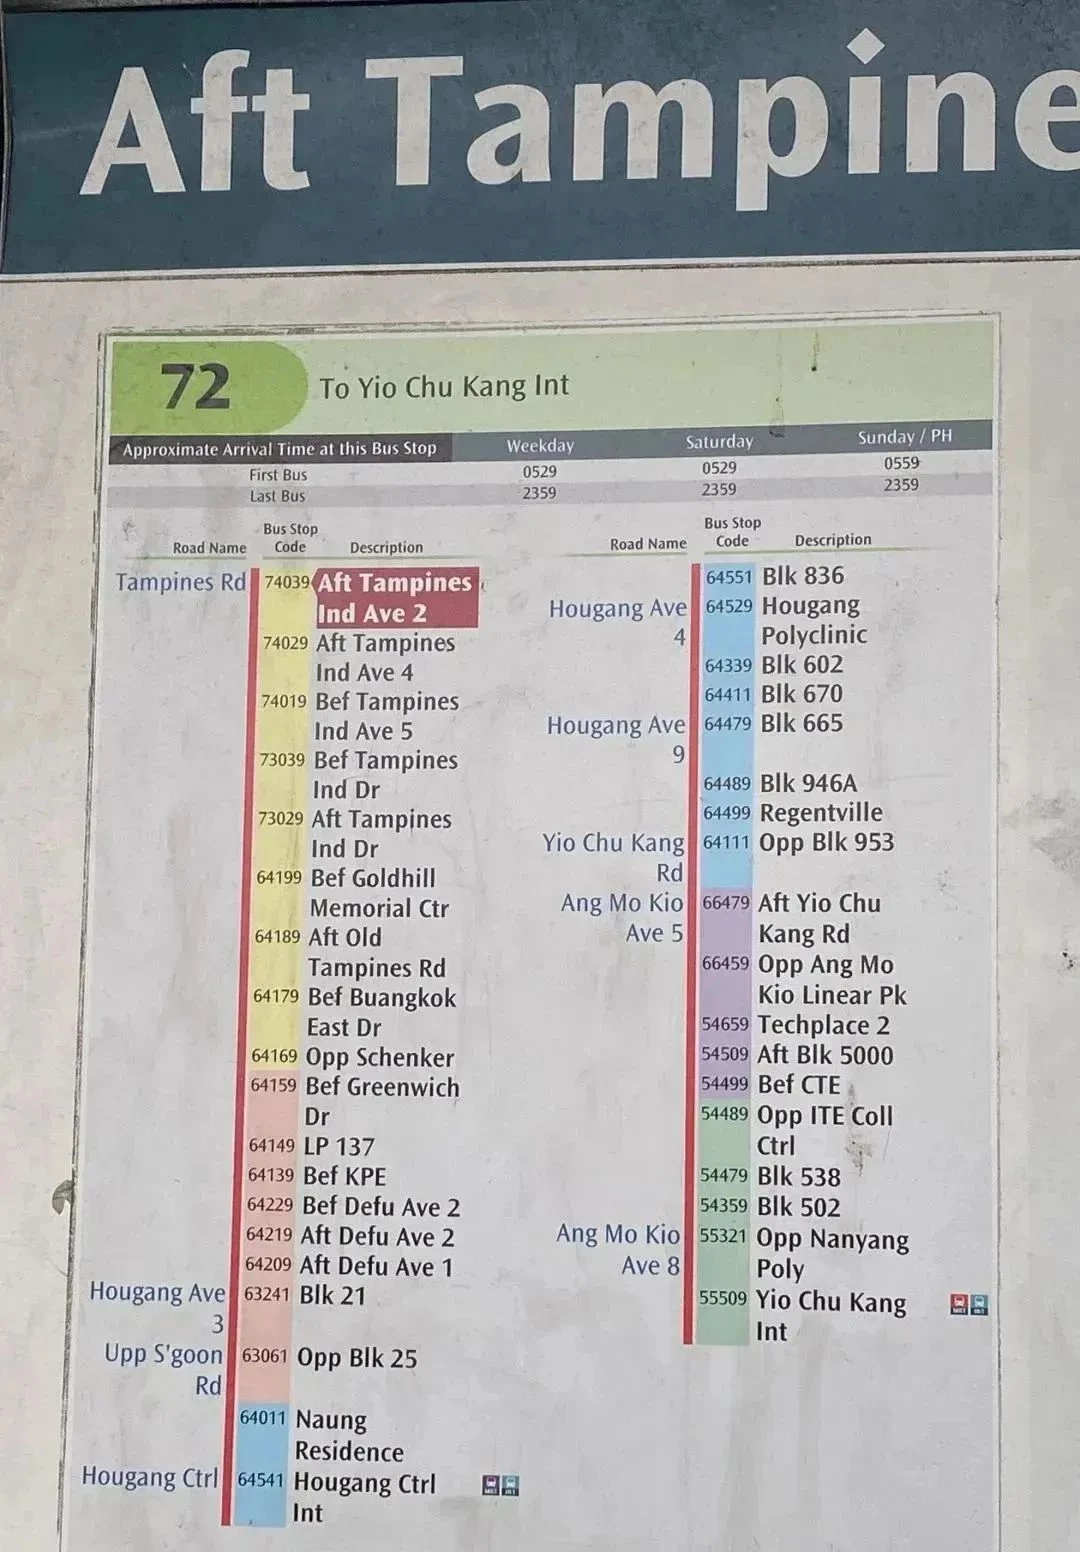 Aft Tampine
72 To Yio Chu Kang Int
Approximate Arrival Time at this Bus Stop Weekday Saturday Sunday / PH
First Bus 0529 0529 0559
Last Bus 2359 2359 2359
Road Name Bus Stop Code Description
Tampines Rd 74039 Aft Tampines
Ind Ave 2
74029 Aft Tampines
Ind Ave 4
74019 Bef Tampines
Ind Ave 5
73039 Bef Tampines
Ind Dr
73029 Aft Tampines
Ind Dr
64199 Bef Goldhill
Memorial Ctr
64189 Aft Old
Tampines Rd
64179 Bef Buangkok
East Dr
64169 Opp Schenker
64159 Bef Greenwich
Dr
64149 LP 137
64139 Bef KPE
64229 Bef Defu Ave 2
64219 Aft Defu Ave 2
64209 Aft Defu Ave 1
Hougang Ave 63241 Blk 21
3
Upp S'goon 63061 Opp Blk 25
Rd
64011 Naung
Residence
Hougang Ctrl 64541 Hougang Ctrl MRT INT
Int
Road Name Bus Stop Code Description
64551 Blk 836
Hougang Ave 64529 Hougang
4 Polyclinic
64339 Blk 602
64411 Blk 670
Hougang Ave 64479 Blk 665
9
64489 Blk 946A
64499 Regentville
Yio Chu Kang 64111 Opp Blk 953
Rd
Ang Mo Kio 66479 Aft Yio Chu
Ave 5 Kang Rd
66459 Opp Ang Mo
Kio Linear Pk
54659 Techplace 2
54509 Aft Blk 5000
54499 Bef CTE
54489 Opp ITE Coll
Ctrl
54479 Blk 538
54359 Blk 502
Ang Mo Kio 55321 Opp Nanyang
Ave 8 Poly
55509 Yio Chu Kang MRT INT
Int